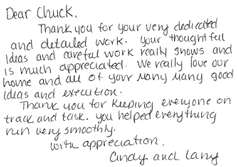 Dear Chuck,
Thank you for your very dedicated
and detailed work. Your thoughtful
ideas and careful work really shows and
is much appreciated. We really love our
home and all of your many many good
ideas and execution.
Thank you for keeping everyone on
track and task. You helped everything
run very smoothly.
With appreciation,
Cindy and Larry